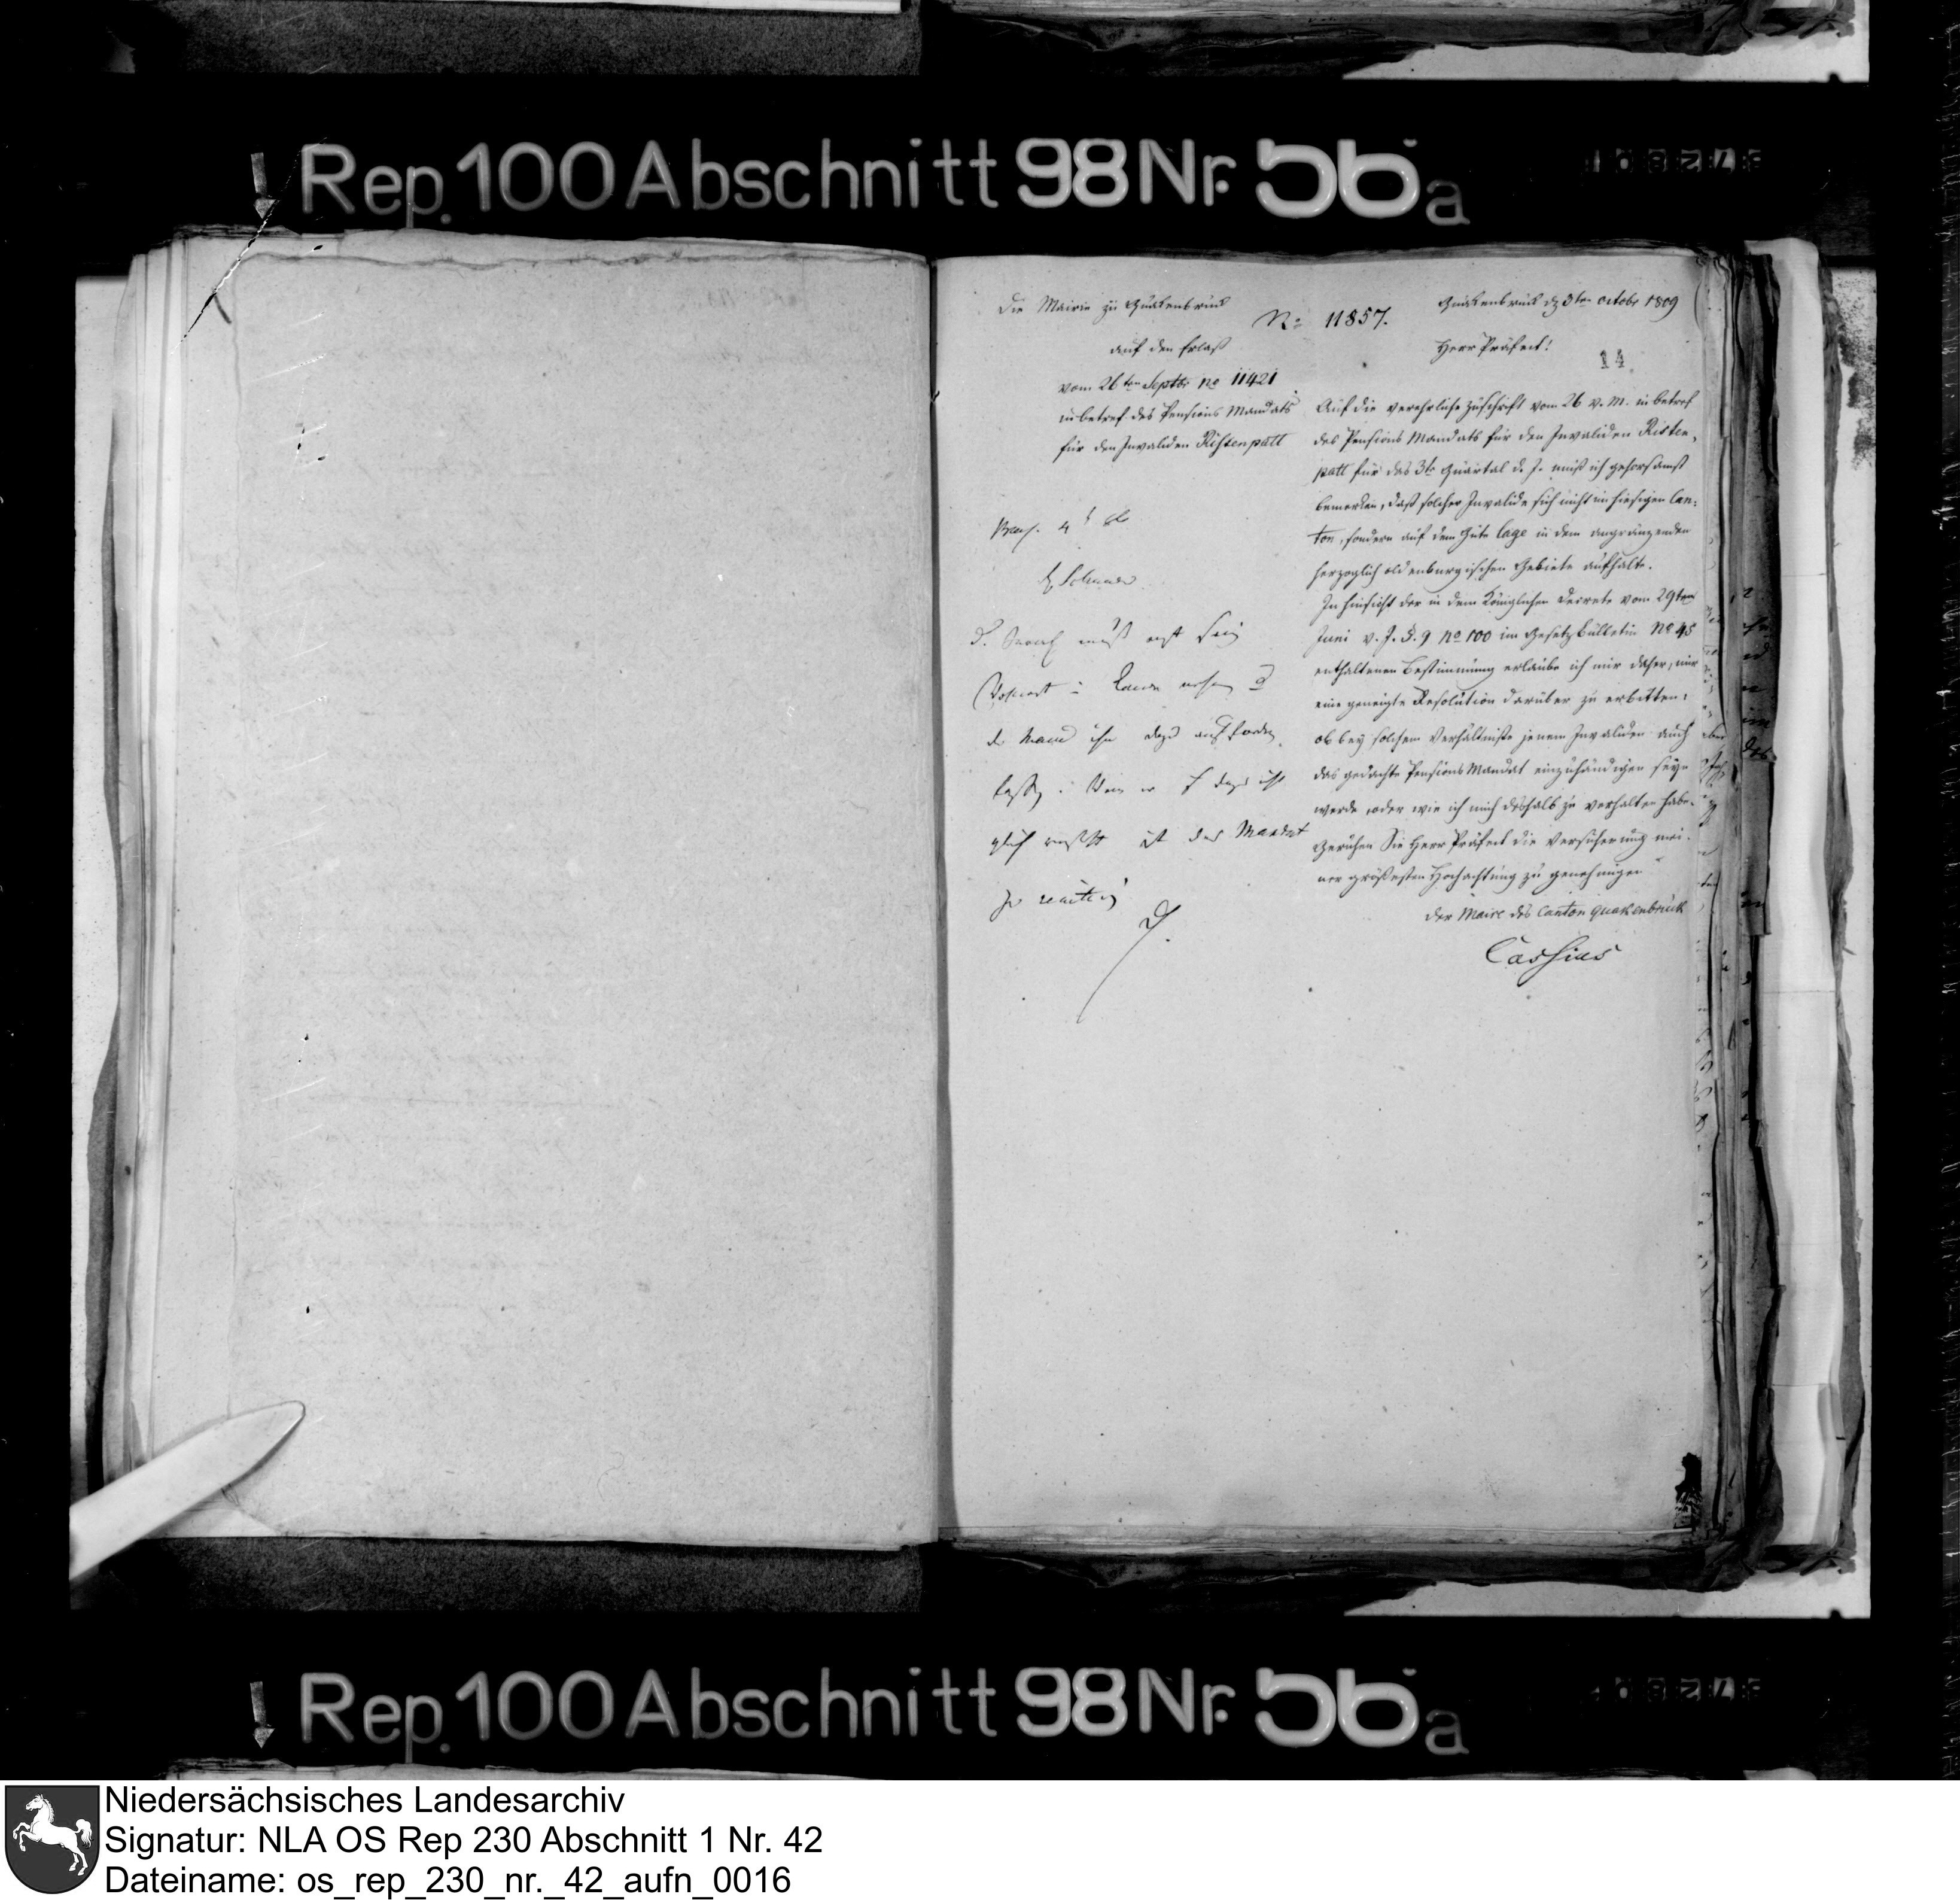 Rep. 100 Abschnitt 98 Nr. 56a
Die Mairie zu Quakenbrück
No 11857.
Quakenbrück d 3ten octobr 1809
auf den Erlaß
vom 26ten Septbr no 11421
in betref des Pensions Mandats
für den Invaliden Ristenpatt
Herr Präfect!
14
Auf die verehrliche Zuschrift vom 26 v. M. in betref
des Pensions Mandats für den Invaliden Risten-
patt für das 3te Quartal d. J. muß ich gehorsamst
bemerken, daß solcher Invalide sich nicht im hiesigen Can-
ton, sondern auf dem Gute Lage in dem angränzenden
herzoglich oldenburgischen Gebiete aufhalte.
In hinsicht der in dem Königlichen Decrete vom 29ten
Juni v. J. §. 9 no 100 im Gesetzbülletin no 45
enthaltenen Bestimmung erlaube ich mir daher, mir
eine geneigte Resolution darüber zu erbitten:
ob bey solchem Verhältniße jenem Invaliden auch
das gedachte Pensions Mandat einzuhändigen seyn
werde, oder wie ich mich deshalb zu verhalten habe.
Geruhen Sie Herr Präfect die Versicherung mei-
ner größesten Hochachtung zu genehmigen
Der Maire des Canton Quakenbrück
Cassius
muß erst sein
Maire ihn dazu auffordern
lassen
ist das Mandat
Rep. 100 Abschnitt 98 Nr. 56a
Niedersächsisches Landesarchiv
Signatur: NLA OS Rep 230 Abschnitt 1 Nr. 42
Dateiname: os_rep_230_nr._42_aufn_0016